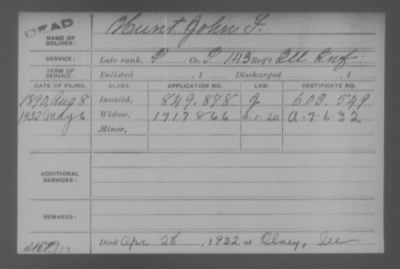 DEAD
Hunt John F.
NAME OF SOLDIER:
SERVICE: Late rank, P Co. I 143 Reg't Ill Inf
TERM OF SERVICE: Enlisted , 1 Discharged , 1
DATE OF FILING. CLASS. APPLICATION NO. LAW. CERTIFICATE NO.
1890, Aug 8 Invalid, 849,878 J 603,549
1932 May 6 Widow, 1717866 -1-20 A-7-632
Minor,
ADDITIONAL SERVICES:
REMARKS:
Died Apr 28, 1932, at Olney, Ill